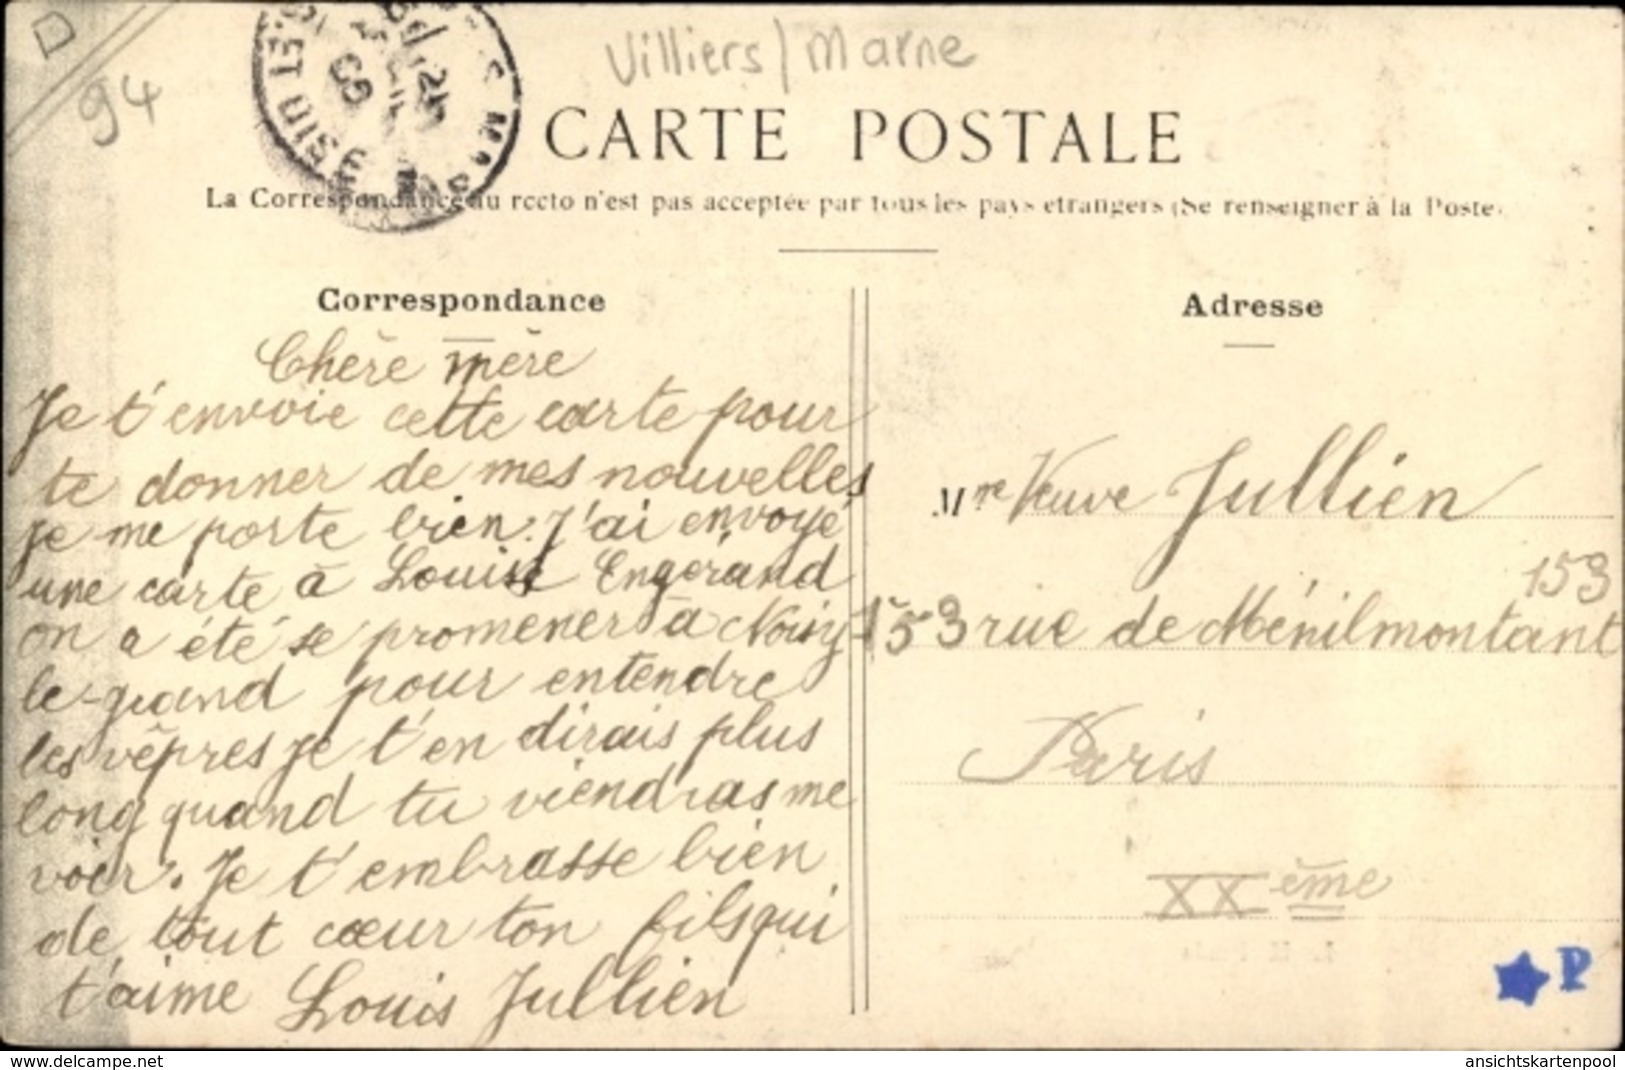 D
94
Villiers/Marne
CARTE POSTALE
La Correspondance au recto n'est pas acceptée par tous les pays etrangers (Se renseigner à la Poste)
Correspondance
Adresse
Chère mère
Je t'envoie cette carte pour
te donner de mes nouvelles
Je me porte bien. J'ai envoyé
une carte à Louise Engérand
on a été se promener à Noisy-
le-grand pour entendre
les vêpres je t'en dirais plus
long quand tu viendras me
voir. Je t'embrasse bien
de tout cœur ton fils qui
t'aime Louis Jullien
Mme Veuve Jullien
153
153 rue de Ménilmontant
Paris
XXème
P
www.delcampe.net
ansichtskartenpool